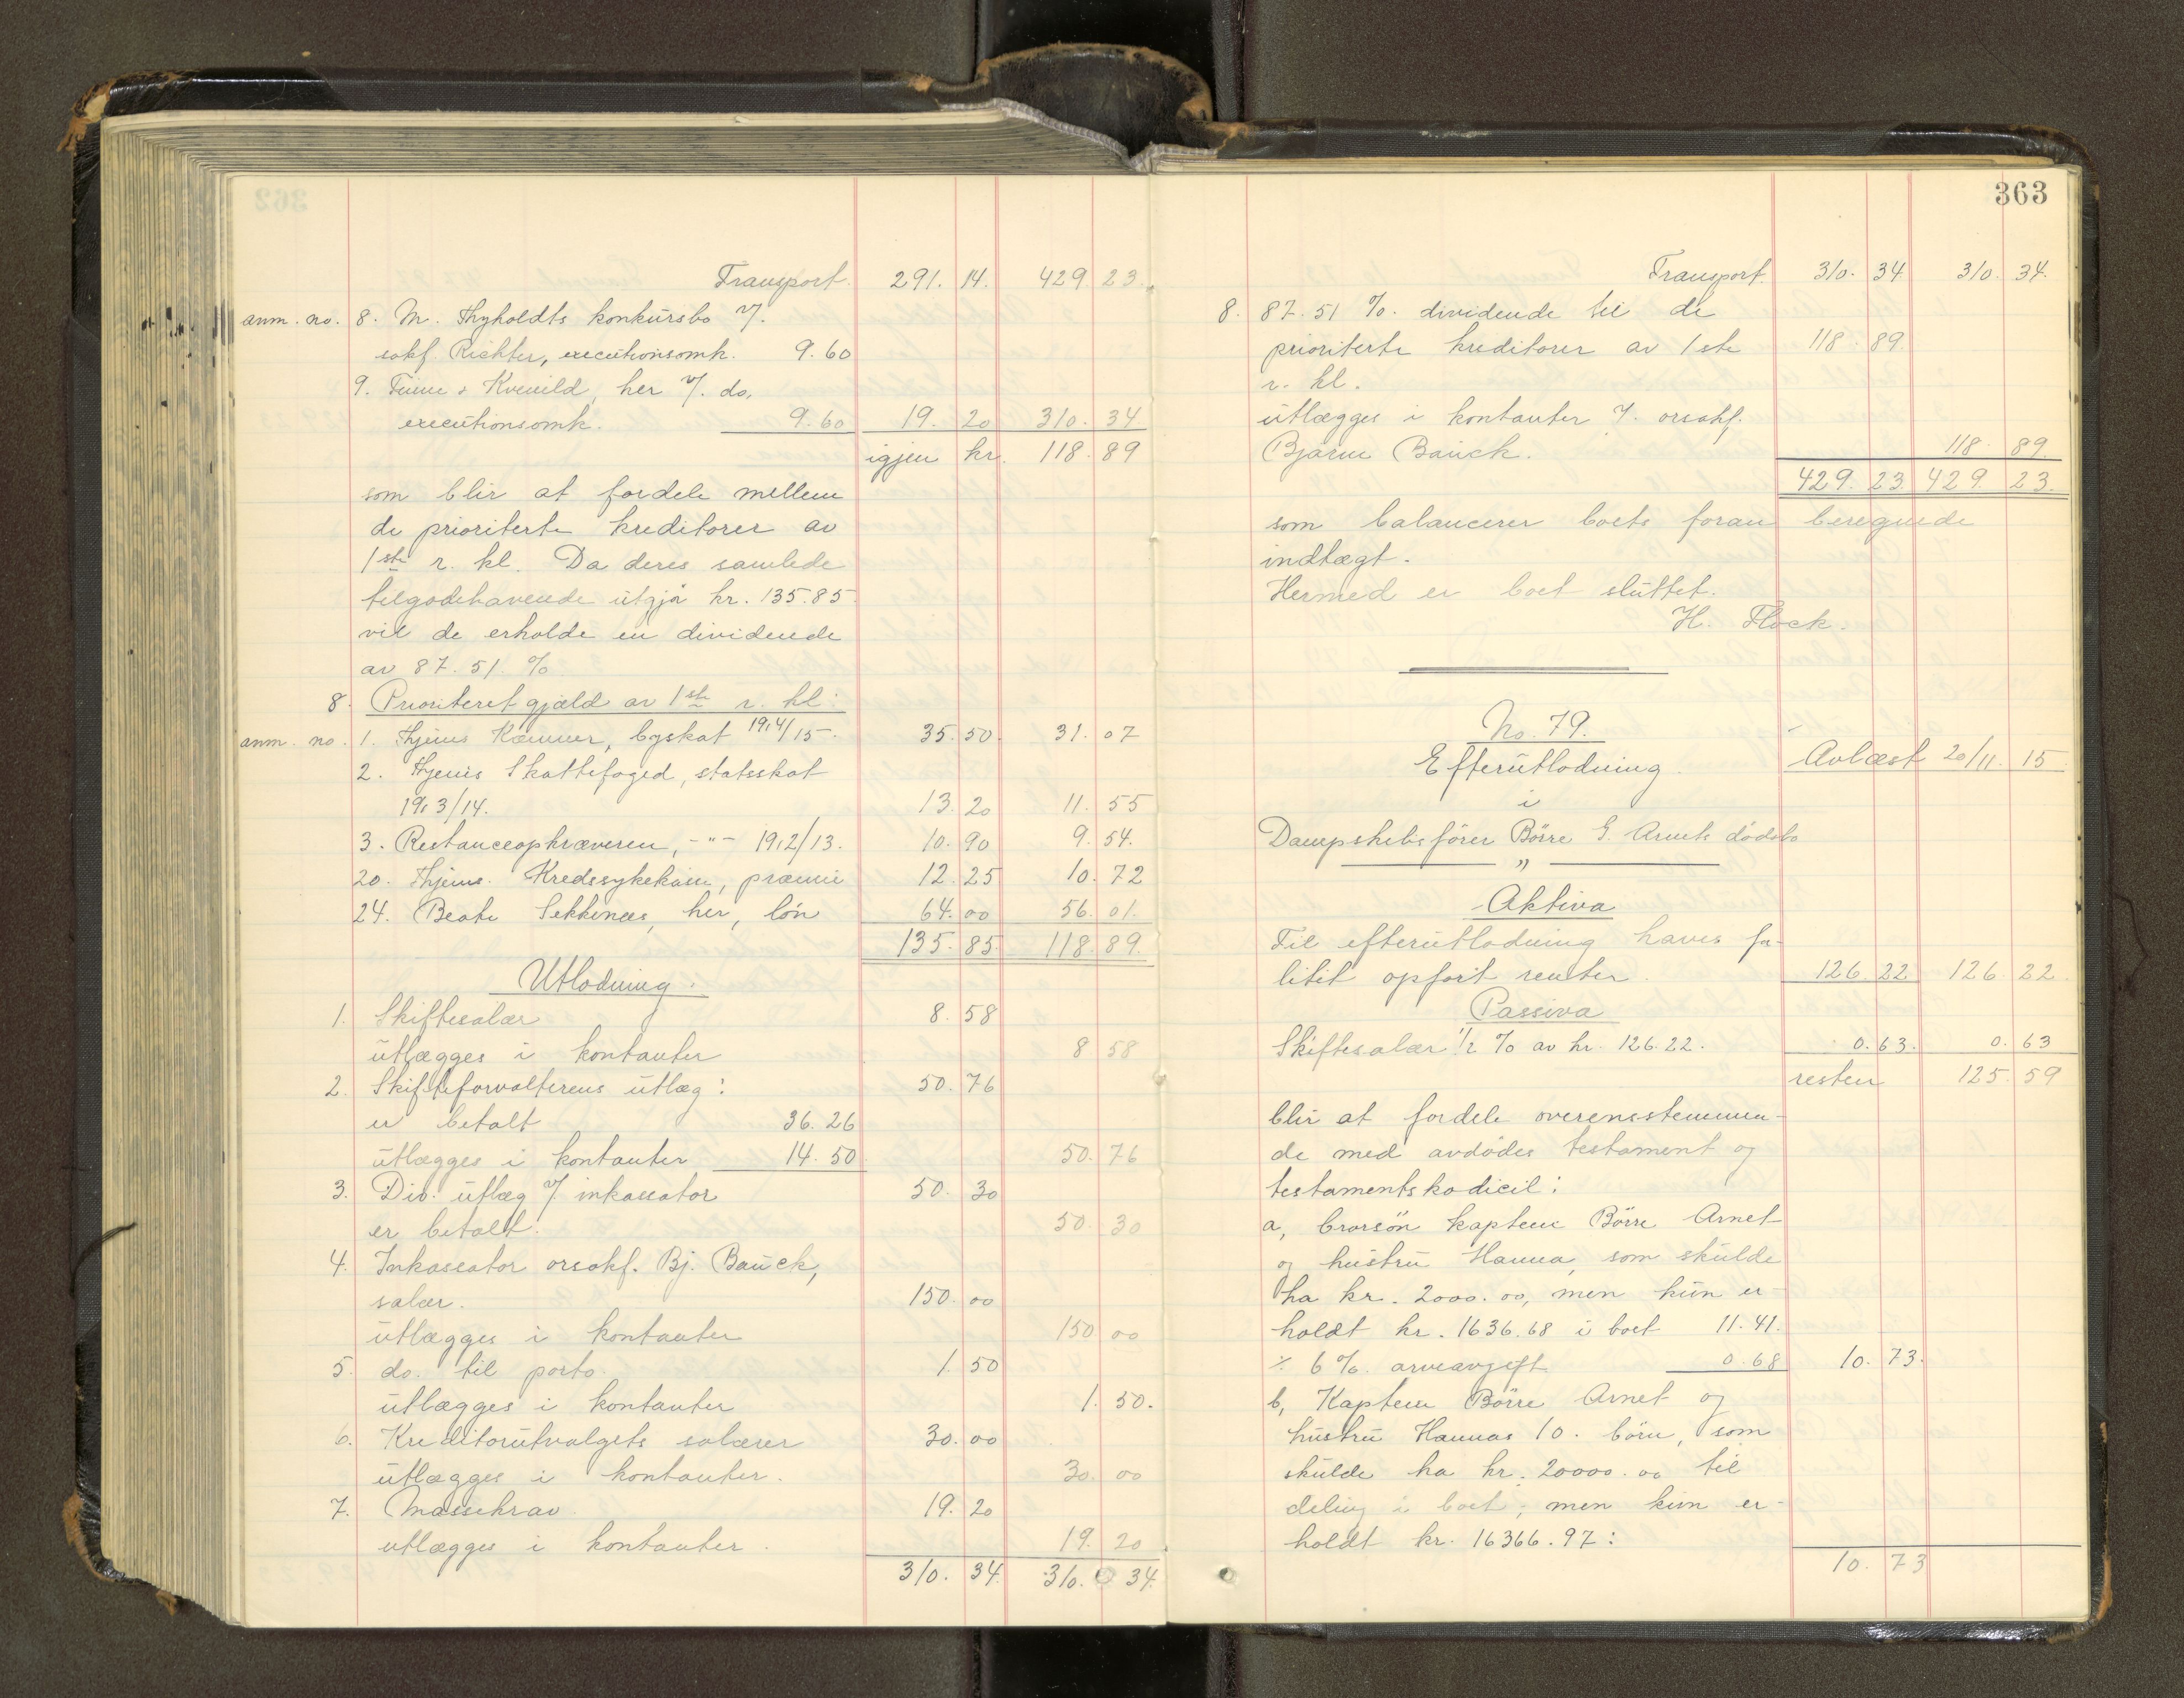 Transport. 291. 14. 429. 23.
anm. no. 8. M. Thyholdts konkursbo v/.
sakf. Richter, executionsomk. 9.60
9. Finne & Kvenild, her v/. do,
executionsomk. 9.60 19. 20 310. 34
igjen kr. 118. 89
som blir at fordele mellem
de prioriterte kreditorer av
1ste r. kl. Da deres samlede
tilgodehavende utgjør kr. 135.85
vil de erholde en dividende
av 87.51 %
8. Prioritert gjæld av 1ste r. kl:
anm. no. 1. Thjems Kæmner, byskat 1914/15. 35. 50. 31. 07
2. Thjems Skattefoged, statsskat
1913/14. 13. 20 11. 55
3. Restanceopkræveren, -"- 1912/13. 10. 90 9. 54.
20. Thjems. Kredssykekasse, præmie 12. 25 10. 72
24. Beate Sekkenæs, her, løn 64. 00 56. 01.
135. 85 118. 89.
Utlodning.
1. Skiftesalær 8. 58
utlægges i kontanter 8 58
2. Skifteforvalterens utlæg: 50. 76
er betalt 36. 26
utlægges i kontanter 14. 50 50. 76
3. Div. utlæg v/ inkassator 50. 30
er betalt. 50. 30
4. Inkassator orsakf. Bj. Bauck,
salær. 150. 00
utlægges i kontanter 150 00
5. do. til porto 1. 50
utlægges i kontanter 1. 50.
6. Kreditorutvalgets salærer 30. 00
utlægges i kontanter. 30. 00
7. Massekrav 19. 20
utlægges i kontanter. 19. 20
310. 34. 310. 34.
363
Transport. 310. 34 310. 34.
8. 87.51 %. dividende til de
prioriterte kreditorer av 1ste 118. 89
r. kl.
utlægges i kontanter v/. orsakf.
Bjarne Bauck. 118. 89.
429. 23 429. 23.
som balancerer boets foran beregnede
indtægt.
Hermed er boet sluttet.
H. Flock.
No. 79.
Efterutlodning. Avlæst 20/11. 15
i
Dampskibsfører Börre G. Arnets dödsbo
"
Aktiva
Til efterutlodning haves fa-
litit opført renter. 126. 22 126. 22.
Passiva
Skiftesalær 1/2 % av kr. 126.22. 0. 63. 0. 63
resten 125. 59
blir at fordele overensstemmen-
de med avdödes testament og
testamentskodicil:
a, brorsön kaptein Börre Arnet
og hustru Hanna, som skulde
ha kr. 2000.00, men kun er-
holdt kr. 1636.68 i boet 11.41.
÷ 6%. arveavgift 0.68 10. 73.
b, Kaptein Börre Arnet og
hustru Hannas 10. börn, som
skulde ha kr. 20000.00 til
deling i boet, men kun er-
holdt kr. 16366.97:
10. 73